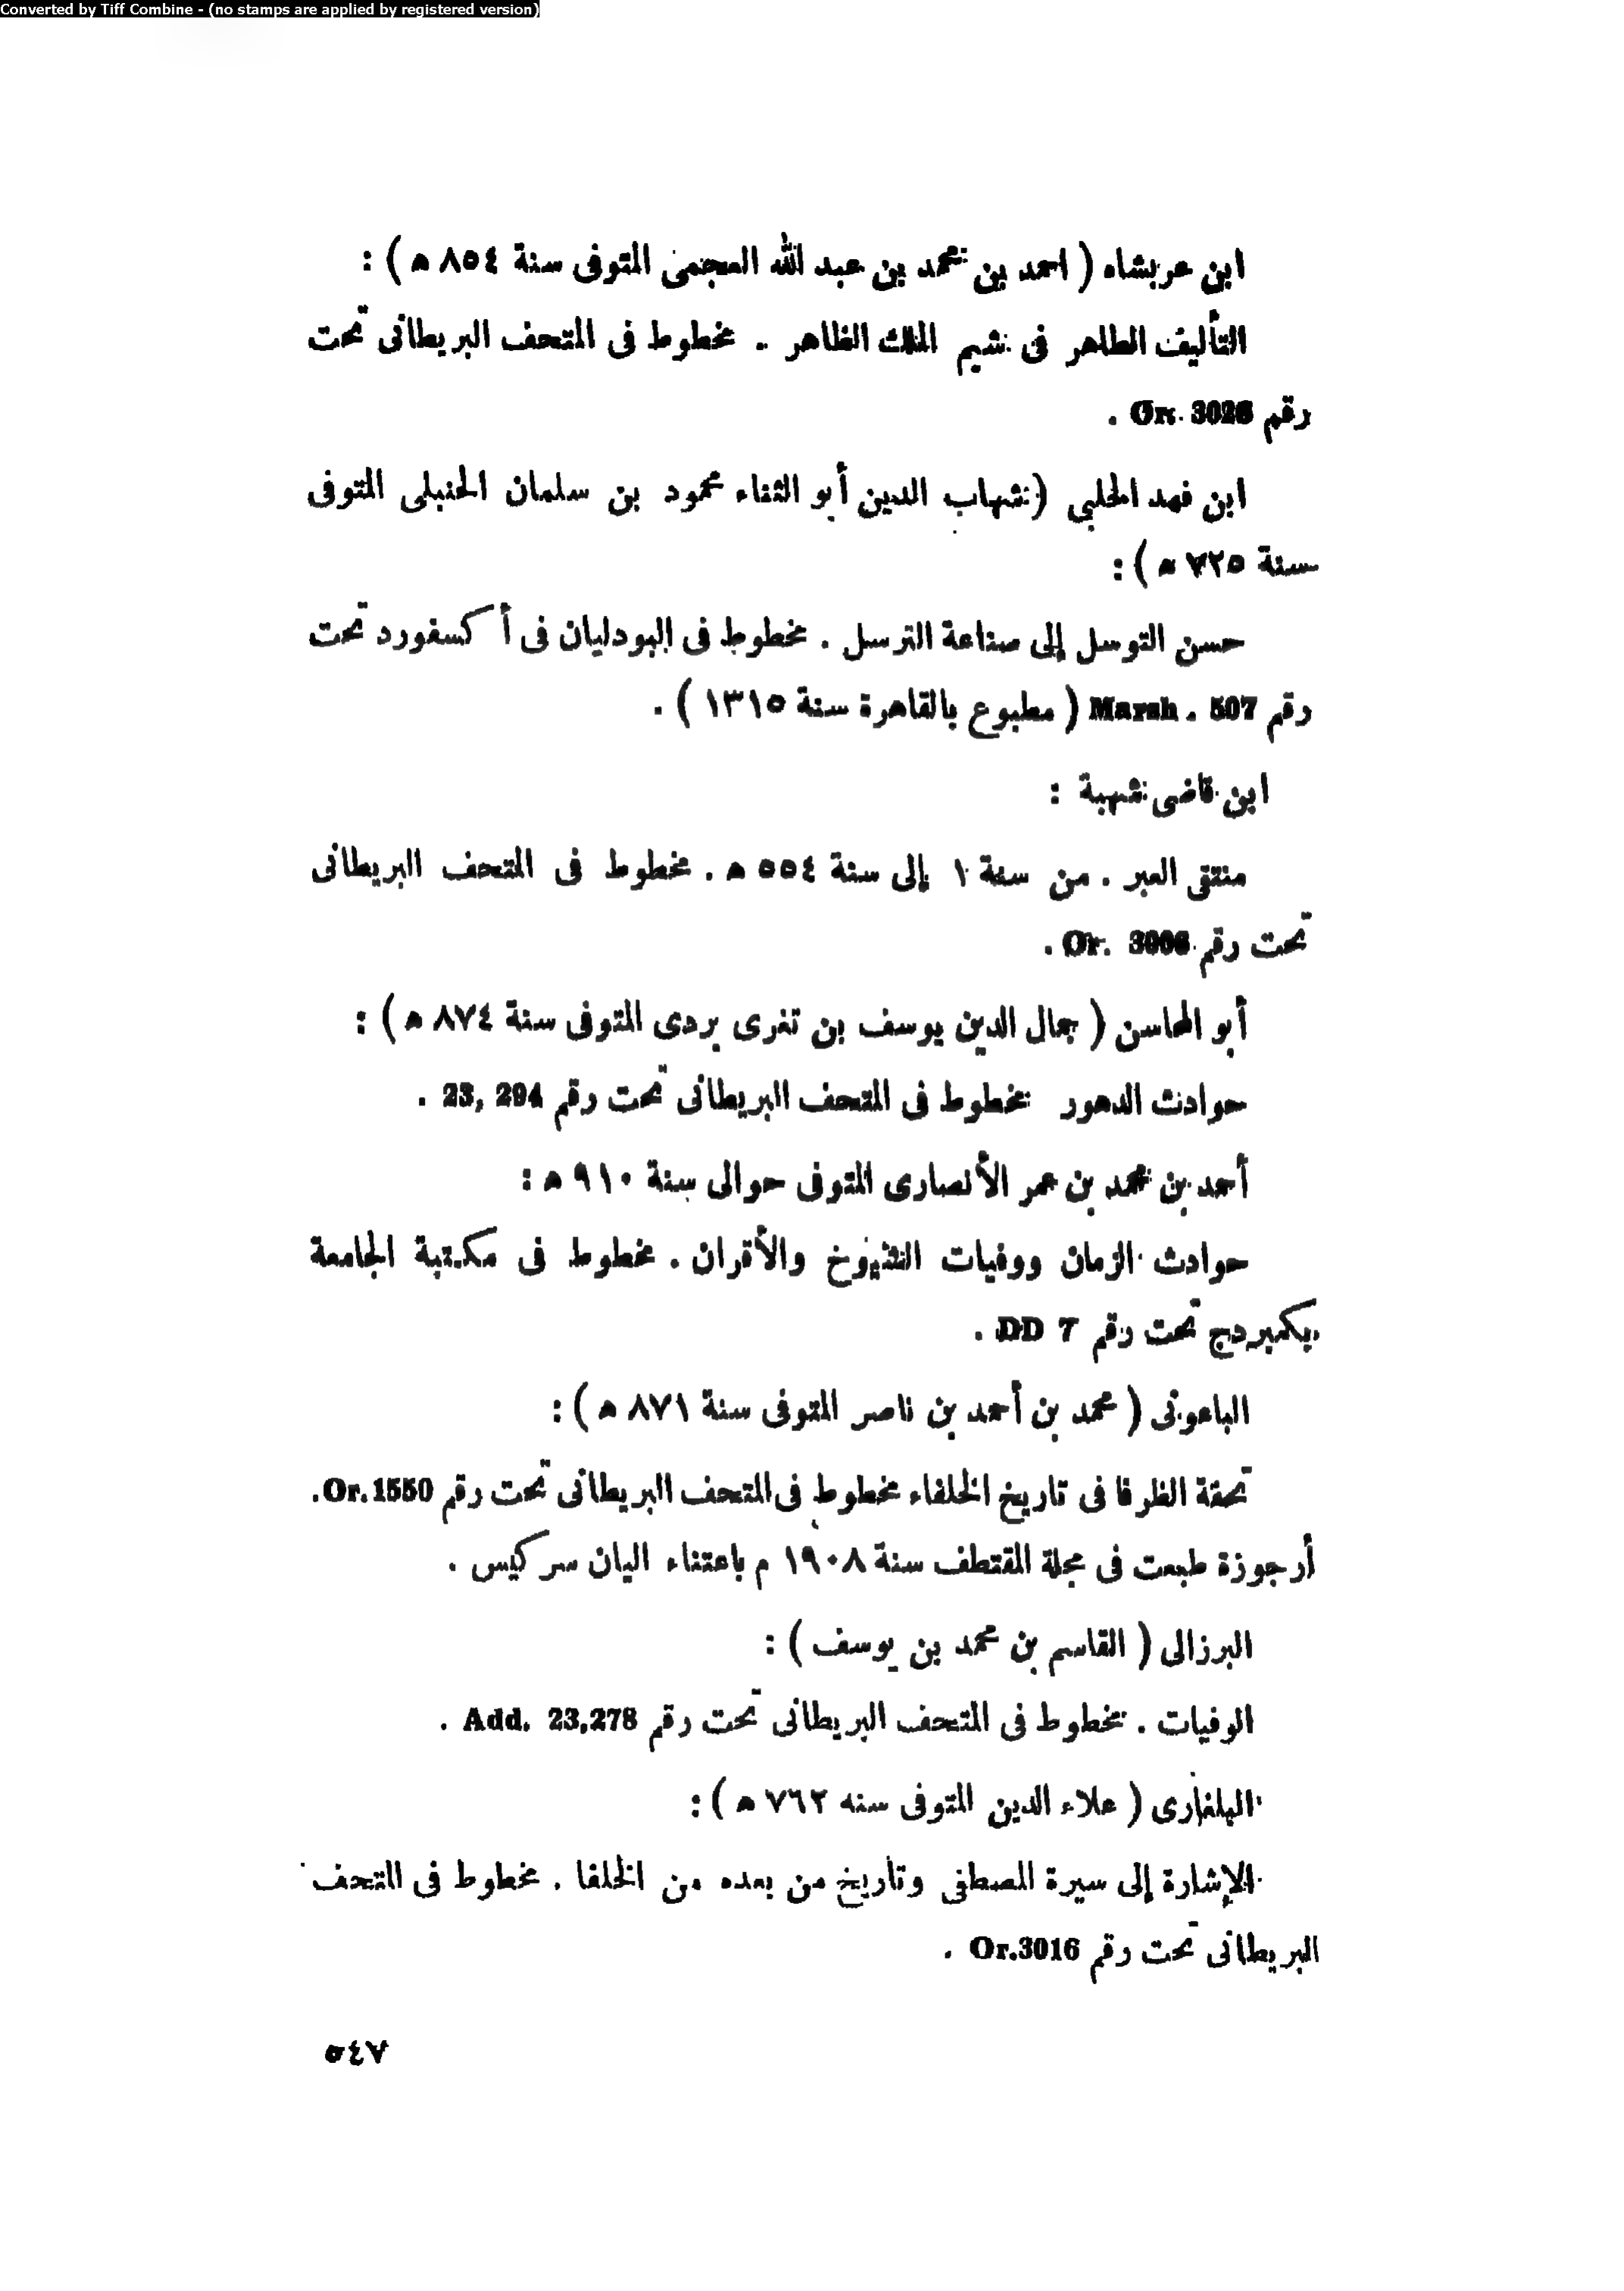 Converted by Tiff Combine - (no stamps are applied by registered version)
ابن عربشاه ( احمد بن محمد بن عبد الله العجمى المتوفى سنة ٨٥٤ ه ) :
التأليف الطاهر فى شيم الملك الظاهر .. مخطوط فى المتحف البريطانى تحت
رقم Or. 3026 .
ابن فهد الحلبي (شهاب الدين أبو الثناء محمود بن سلمان الحنبلى المتوفى
سنة ٧٢٥ ه ) :
حسن التوسل إلى صناعة الترسل . مخطوط فى البودليان فى أكسفورد تحت
رقم Marsh . 507 ( مطبوع بالقاهرة سنة ١٣١٥ ) .
ابن قاضى شهبة :
منتقى العبر . من سنة ١ إلى سنة ٥٥٤ ه . مخطوط فى المتحف البريطانى
تحت رقم Or. 3006 .
أبو المحاسن ( جمال الدين يوسف بن تغرى بردى المتوفى سنة ٨٧٤ ه ) :
حوادث الدهور مخطوط فى المتحف البريطانى تحت رقم 23, 294 .
أحمد بن محمد بن عمر الأنصارى المتوفى حوالى سنة ٩١٠ ه :
حوادث الزمان ووفيات الشيوخ والأقران . مخطوط فى مكتبة الجامعة
بكمبردج تحت رقم DD 7 .
الباعونى ( محمد بن أحمد بن ناصر المتوفى سنة ٨٧١ ه ) :
تحفة الظرفا فى تاريخ الخلفاء مخطوط فى المتحف البريطانى تحت رقم Or.1550.
أرجوزة طبعت فى مجلة المقتطف سنة ١٩٠٨ م باعتناء اليان سركيس .
البرزالى ( القاسم بن محمد بن يوسف ) :
الوفيات . مخطوط فى المتحف البريطانى تحت رقم Add. 23,278 .
البلغارى ( علاء الدين المتوفى سنه ٧٦٢ ه ) :
الإشارة إلى سيرة المصطفى وتاريخ من بعده من الخلفا . مخطوط فى المتحف
البريطانى تحت رقم Or.3016 .
٥٤٧